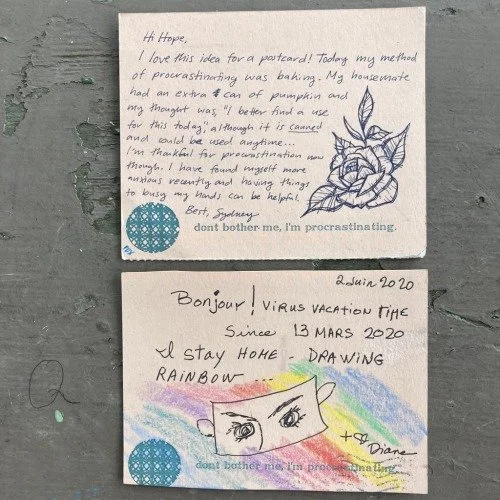 Hi Hope,
I love this idea for a postcard! Today my method
of procrastinating was baking. My housemate
had an extra can of pumpkin and
my thought was, "I better find a use
for this today," although it is canned
and could be used anytime...
I'm thankful for procrastination now
though. I have found myself more
anxious recently and having things
to busy my hands can be helpful.
Best, Sydney
dont bother me, I'm procrastinating.
2 Juin 2020
Bonjour! VIRUS VACATION TIME
Since 13 MARS 2020
I stay HOME - DRAWING
RAINBOW ...
+ Diane
dont bother me, I'm procrastinating.